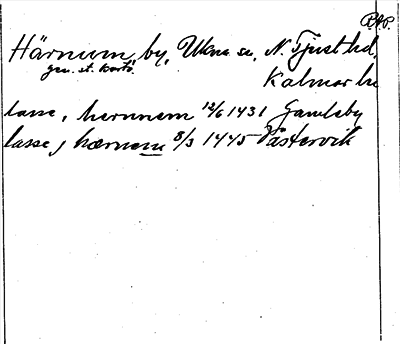 RAP.
Härnum, by, Ukna sn, N. Tjust hd.
gen. st. kart.
Kalmar län
lasse, hernnem 12/6 1431 Gamleby
lasse j hærnem 8/3 1445 Västervik